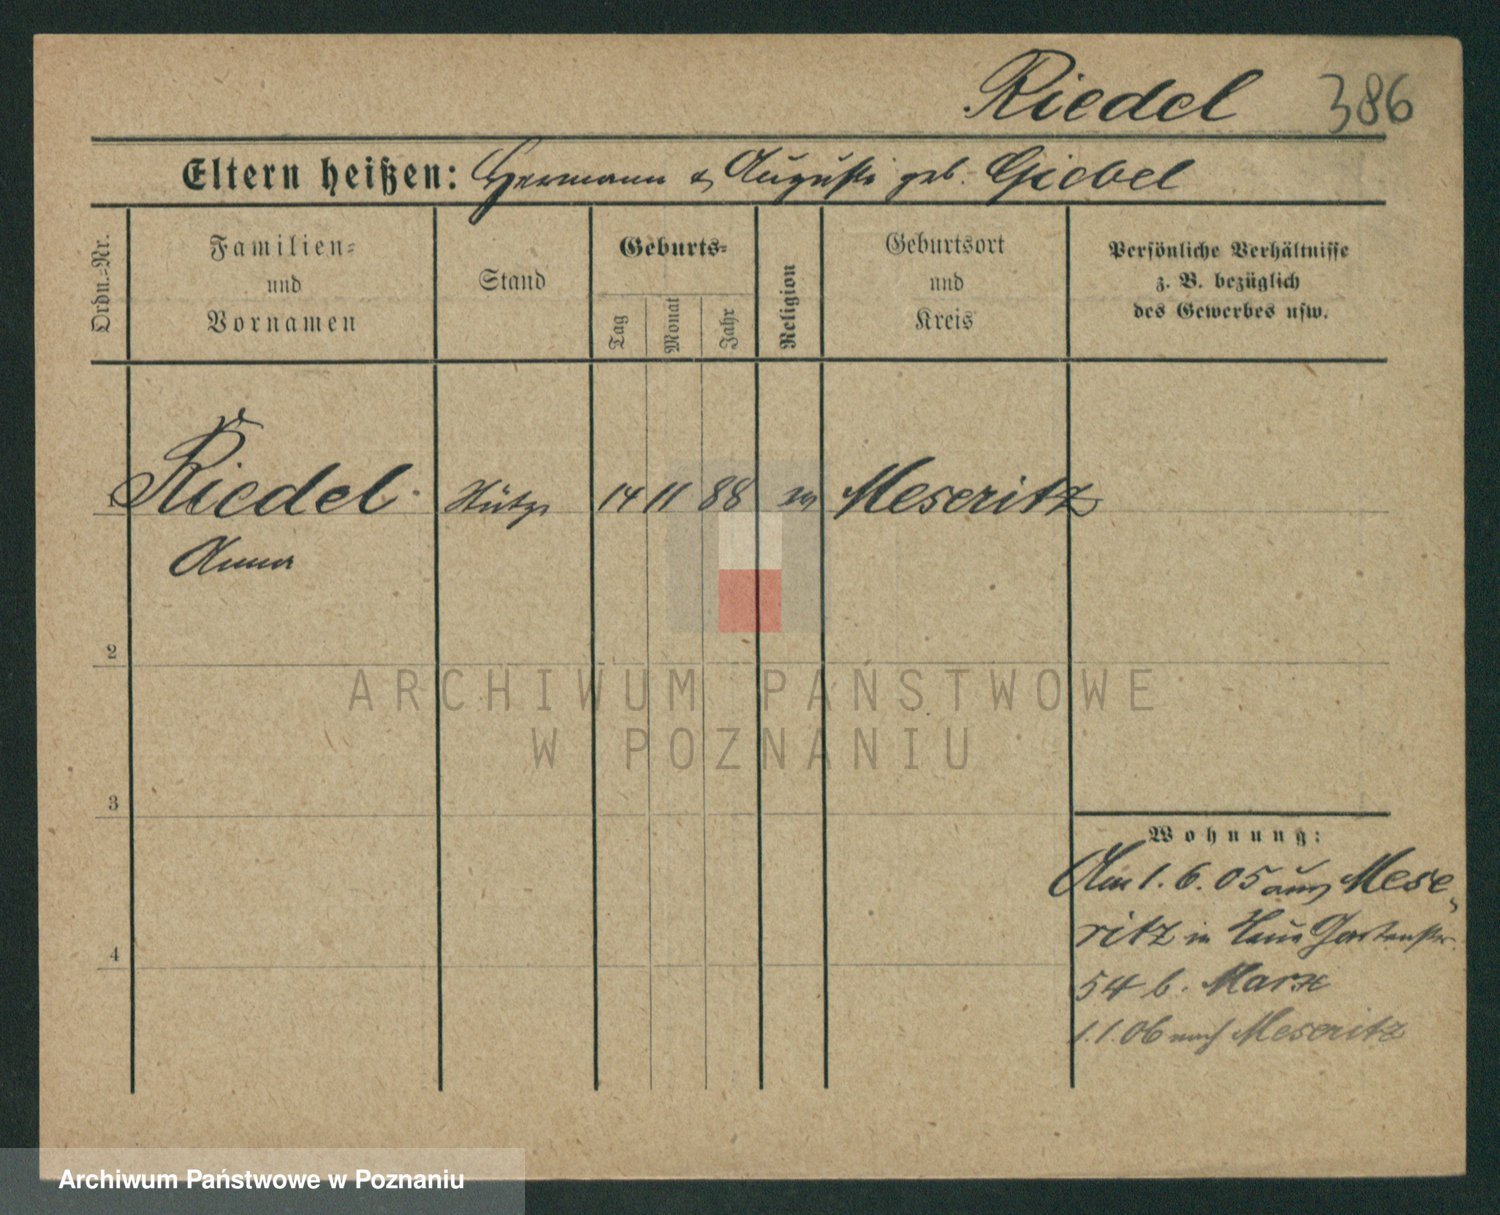 Riedel 386
Eltern heißen: Hermann & Auguste geb. Giebel
Ordn.=Nr.
Familien=
und
Vornamen
Stand
Geburts=
Tag
Monat
Jahr
Religion
Geburtsort
und
Kreis
Persönliche Verhältnisse
z. B. bezüglich
des Gewerbes usw.
1 Riedel Stütze 14 11 88 ev Meseritz
Anna
2
3
4
Wohnung:
Am 1. 6. 05 aus Mese
ritz in Gartenstr.
54 b. Marx
1.1.06 nach Meseritz
ARCHIWUM PAŃSTWOWE
W POZNANIU
Archiwum Państwowe w Poznaniu